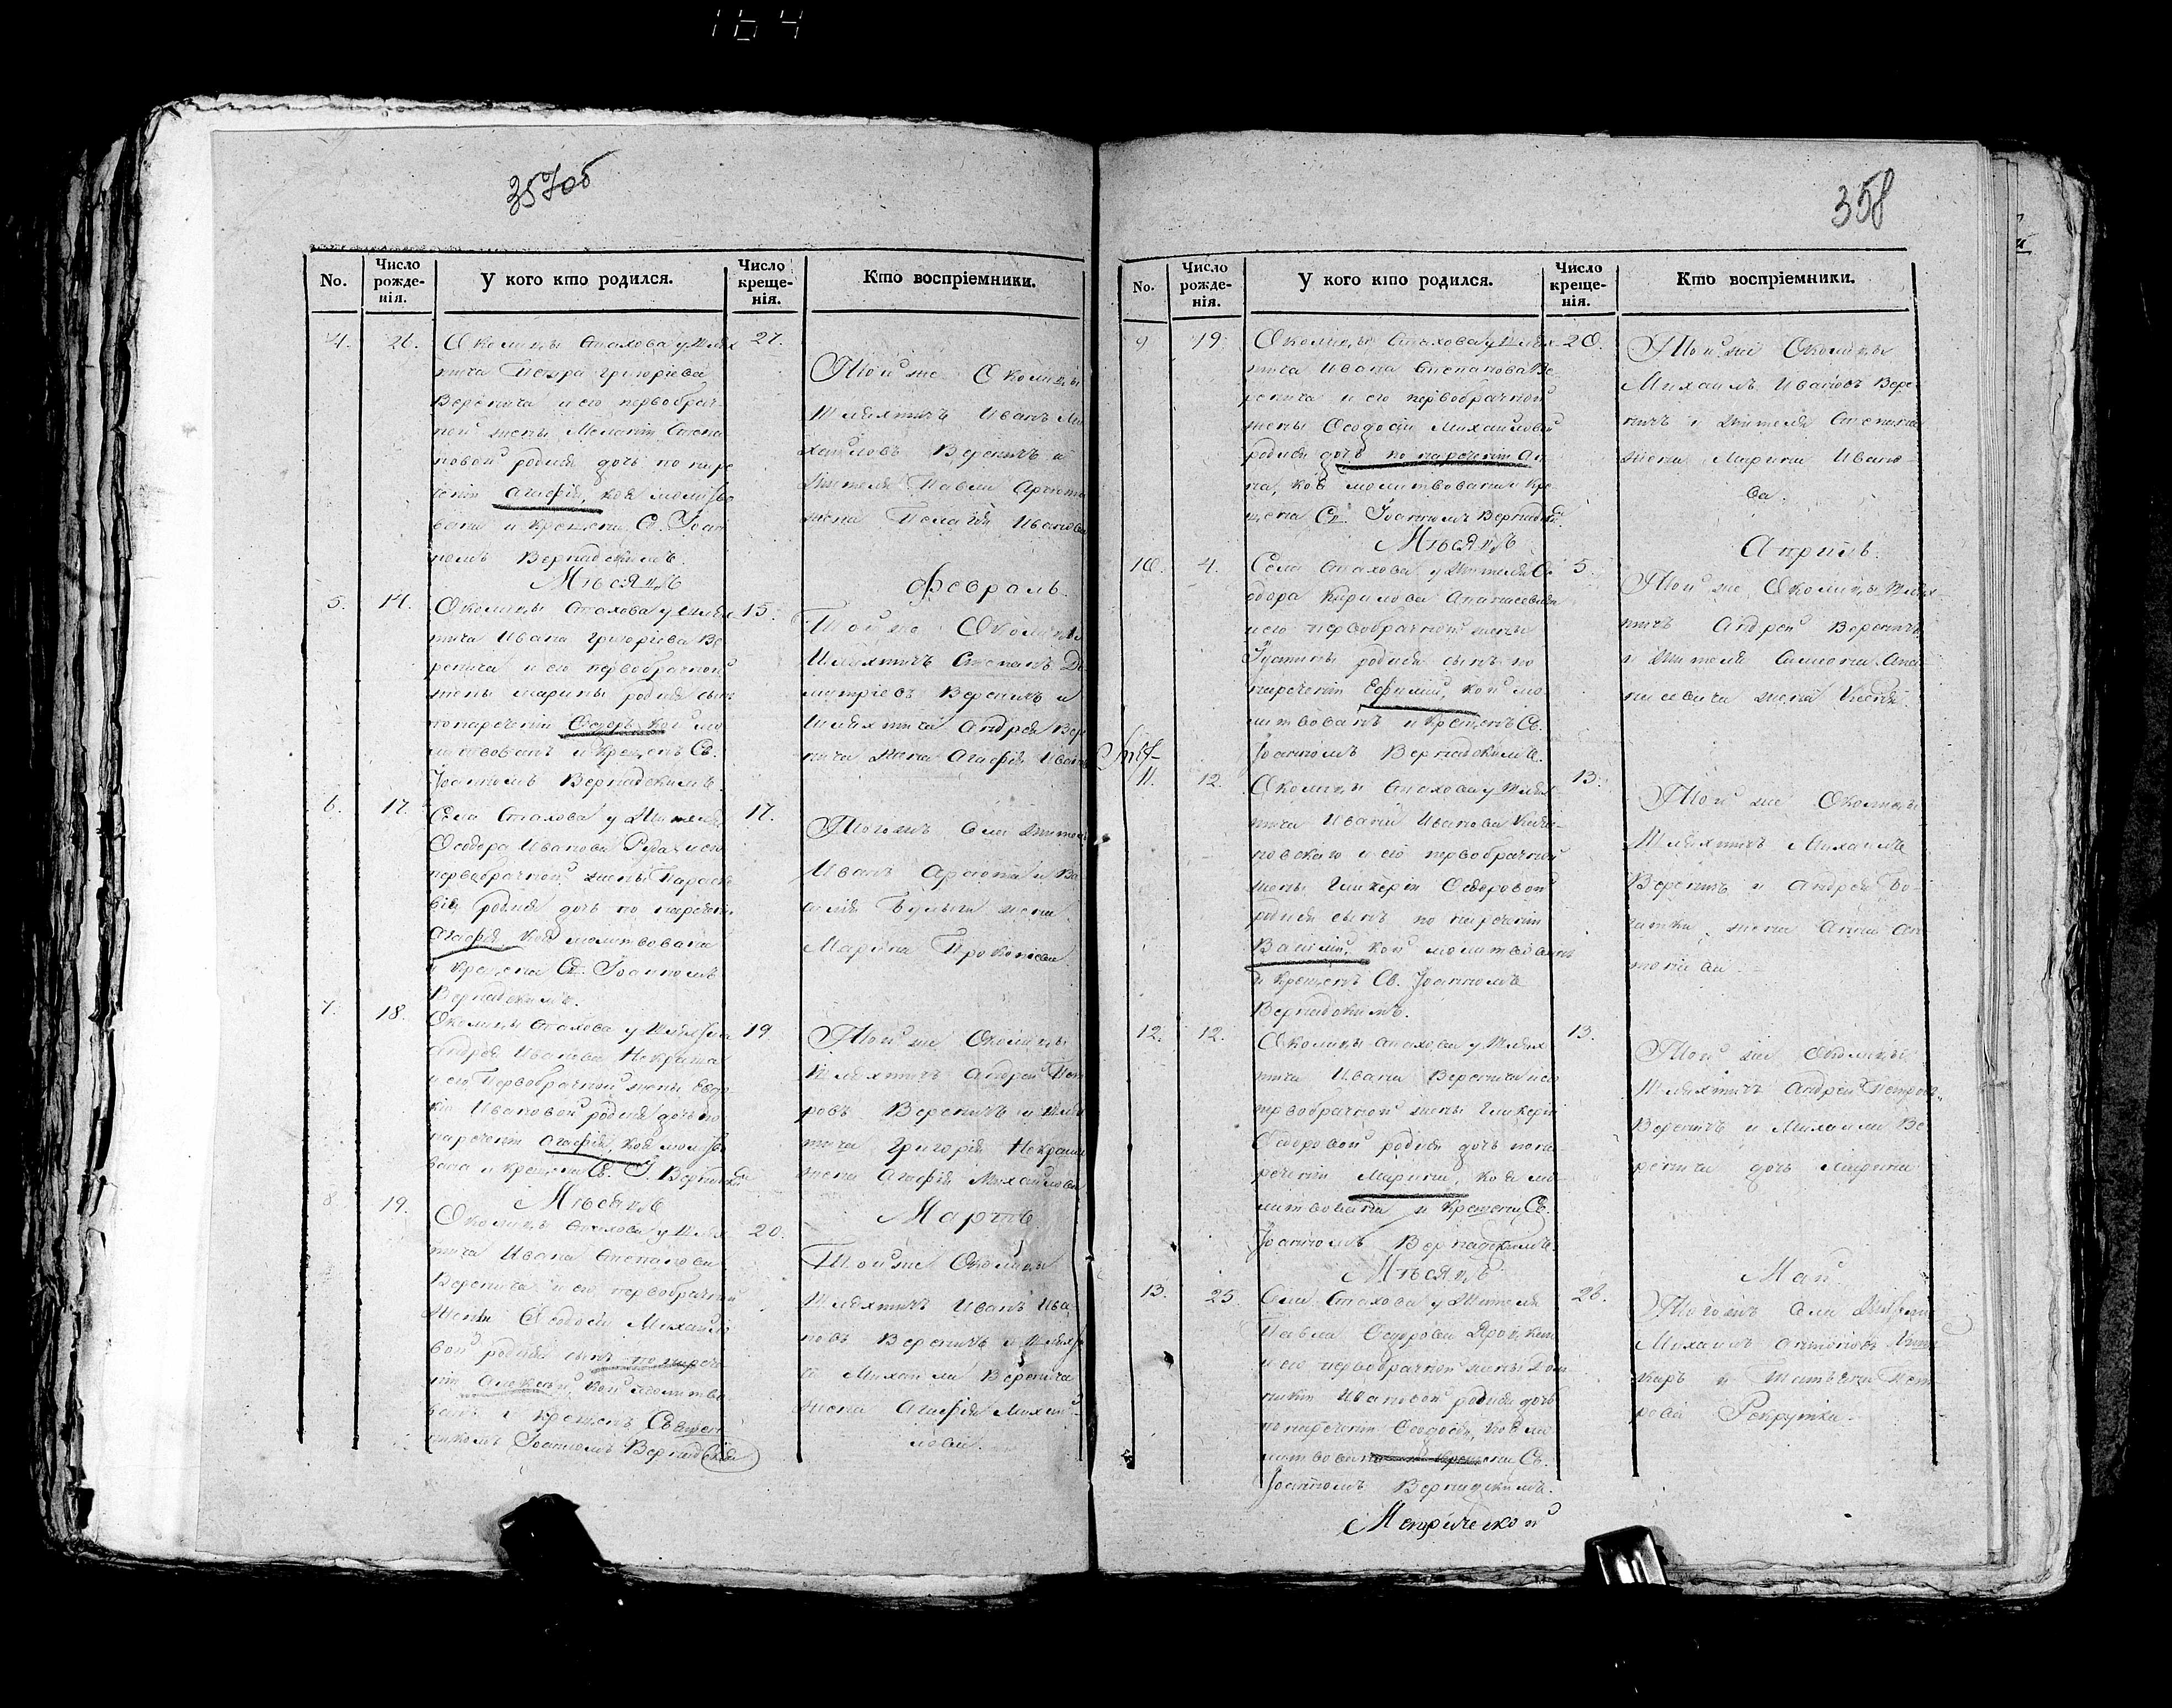 164
357об
No.
Число рожде-нія.
У кого кто родился.
Число креще-нія.
Кто воспріемники.
4. 26. 27.
Околицы Стахова у Шлях
тича Петра Григоріева
Веренича и его первобрач-
ной жены Меланіи Степа
новой родися дочь по наре
ченіи Агафія, коя молитво
вана и крещена Св. Іоан
номъ Вернадскимъ.
Той же Околицы
Шляхтичъ Иванъ Ми
хайловъ Вереничъ и
жителя Павла
жена Пелагія Иванова
Мѣсяцъ Февраль.
5. 14. 15.
Околицы Стахова у Шлях
тича Ивана Григоріева Ве
ренича и его первобрачной
жены Марины родися сынъ
по нареченіи Ѳеодоръ кой мо
литвованъ и крещенъ Св.
Іоанномъ Вернадскимъ.
Той же Околицы
Шляхтичъ Степанъ Ди
митріевъ Вереничъ и
Шляхтича Андрея Вере
нича жена Агафія Иванова
6. 17. 17.
Села Стахова у Жителя
Ѳеодора Иванова и его
первобрачной жены Параске
віи родися дочь по нареченіи
Агафія, коя молитвована
и крещена Св. Іоанномъ
Вернадскимъ.
Тогожъ Села житель
Иванъ и Ва
силія жена
Марина Прокопіева
7. 18. 19
Околицы Стахова у Шляхтича
Андрея Иванова Некраша
и его Первобрачной жены Евдо
кіи Ивановой родися дочь по
нареченіи Агафія, коя молитво
вана и крещена Св. І. Вернадским
Той же Околицы
Шляхтичъ Андрей Пет
ровъ Вереничъ и Шлях
тича Григорія Некраша
жена Агафія Михайлова
Мѣсяцъ Мартъ
8 19. 20.
Околицы Стахова у Шлях
тича Ивана Степанова
Веренича и его первобрачной
жены Ѳеодосіи Михайло
вой родися сынъ по нарече
ніи Алексѣй, кой молитво
ванъ и крещенъ Священ
никомъ Іоанномъ Вернадским
Той же Околицы
Шляхтичъ Иванъ Ива
новъ Вереничъ и Шляхти
ча Михаила Веренича
жена Агафія Михай-
лова.
358
No.
Число рожде-нія.
У кого кто родился.
Число креще-нія.
Кто воспріемники.
9 19. 20.
Околицы Стахова у Шлях-
тича Ивана Степанова Ве-
ренича и его первобрачной
жены Ѳеодосіи Михайловой
родися дочь по нареченіи Ан
на, коя молитвована и кре-
щена Св. Іоанномъ Вернадским.
Той же Околицы
Михаилъ Ивановъ Вере
ничъ и жителя Степана
жена Марина Ивано-
ва.
Мѣсяцъ Апрѣль.
10. 4. 5.
Села Стахова у Жителя Ѳе
одора Кирилова
и его первобрачной жены
Іустины родися сынъ по
нареченіи Ефимій, кой мо
литвованъ и крещенъ Св.
Іоанномъ Вернадскимъ.
Той же Околицы Шлях-
тичъ Андрей Вереничъ
и жителя Симеона
жена Ксенія.
11. 12. 13.
Околицы Стахова у Шлях-
тича Ивана Иванова
и его первобрачной
жены Гликеріи Ѳеодоровой
родися сынъ по нареченіи
Василій, кой молитвованъ
и крещенъ Св. Іоанномъ
Вернадскимъ.
Той же Околицы
Шляхтичъ Михаилъ
Вереничъ и Андрея
жена Анна Ан
тоніева.
12. 12. 13.
Околицы Стахова у Шлях
тича Ивана Веренича и его
первобрачной жены Гликеріи
Ѳеодоровой родися дочь по на
реченіи Марина, коя мо
литвована и крещена Св.
Іоанномъ Вернадскимъ.
Той же Околицы
Шляхтичъ Андрей Петров.
Вереничъ и Михаила Ве
ренича дочь Марина
Мѣсяцъ Май
13. 25. 26.
Села Стахова у Жителя
Павла Ѳеодорова
и его первобрачной жены Дом
никіи Ивановой родися дочь
по нареченіи Ѳеодосія, коя мо
литвована и крещена Св.
Іоанномъ Вернадскимъ.
Тогожъ Села житель
Михаилъ Антоновъ
и Татьяна Пет
рова Рекрутка.
Метрической